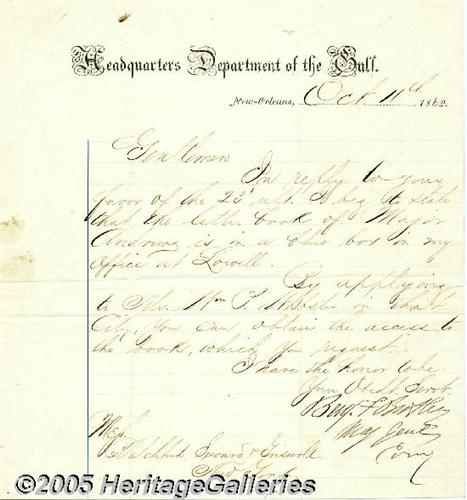 Headquarters Department of the Gulf.
New-Orleans, Oct. 11th 1862.
Gentlemen
In reply to your
favor of the 23d ult. I beg to state
that the letter book of Major
Andrews is in a this box in my
office at Lowell.
By applying
to Mr. Wm P. Webster in that
City, you can obtain the access to
the book, which you request.
I have the honor to be
Your Obedt Servt.
Benj. F. Butler
Maj Genl
Com
Mess.
Blatchford, Seward & Griswold
New York
©2005 HeritageGalleries